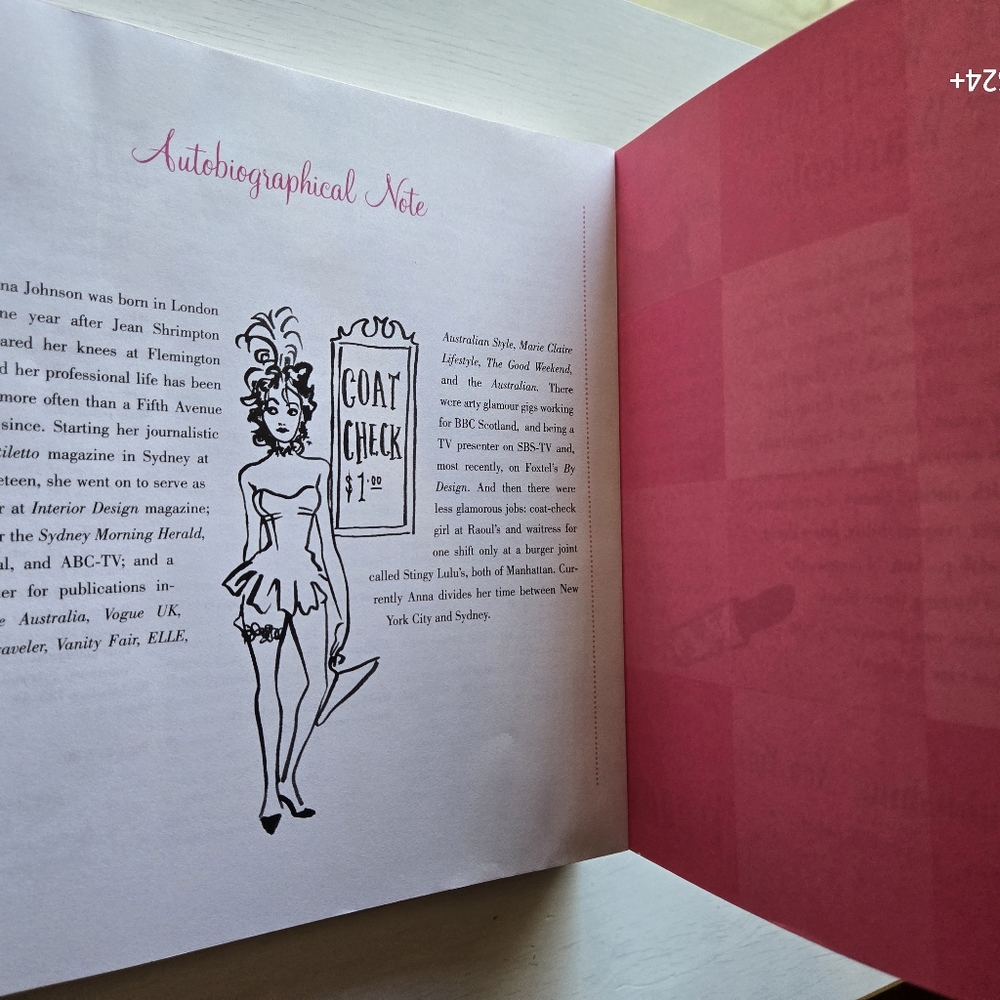 Autobiographical Note
na Johnson was born in London
ne year after Jean Shrimpton
ared her knees at Flemington
d her professional life has been
more often than a Fifth Avenue
since. Starting her journalistic
tiletto magazine in Sydney at
eteen, she went on to serve as
r at Interior Design magazine;
r the Sydney Morning Herald,
al, and ABC-TV; and a
er for publications in-
e Australia, Vogue UK,
raveler, Vanity Fair, ELLE,
COAT
CHECK
$1.00
Australian Style, Marie Claire
Lifestyle, The Good Weekend,
and the Australian. There
were arty glamour gigs working
for BBC Scotland, and being a
TV presenter on SBS-TV and,
most recently, on Foxtel's By
Design. And then there were
less glamorous jobs: coat-check
girl at Raoul's and waitress for
one shift only at a burger joint
called Stingy Lulu's, both of Manhattan. Cur-
rently Anna divides her time between New
York City and Sydney.